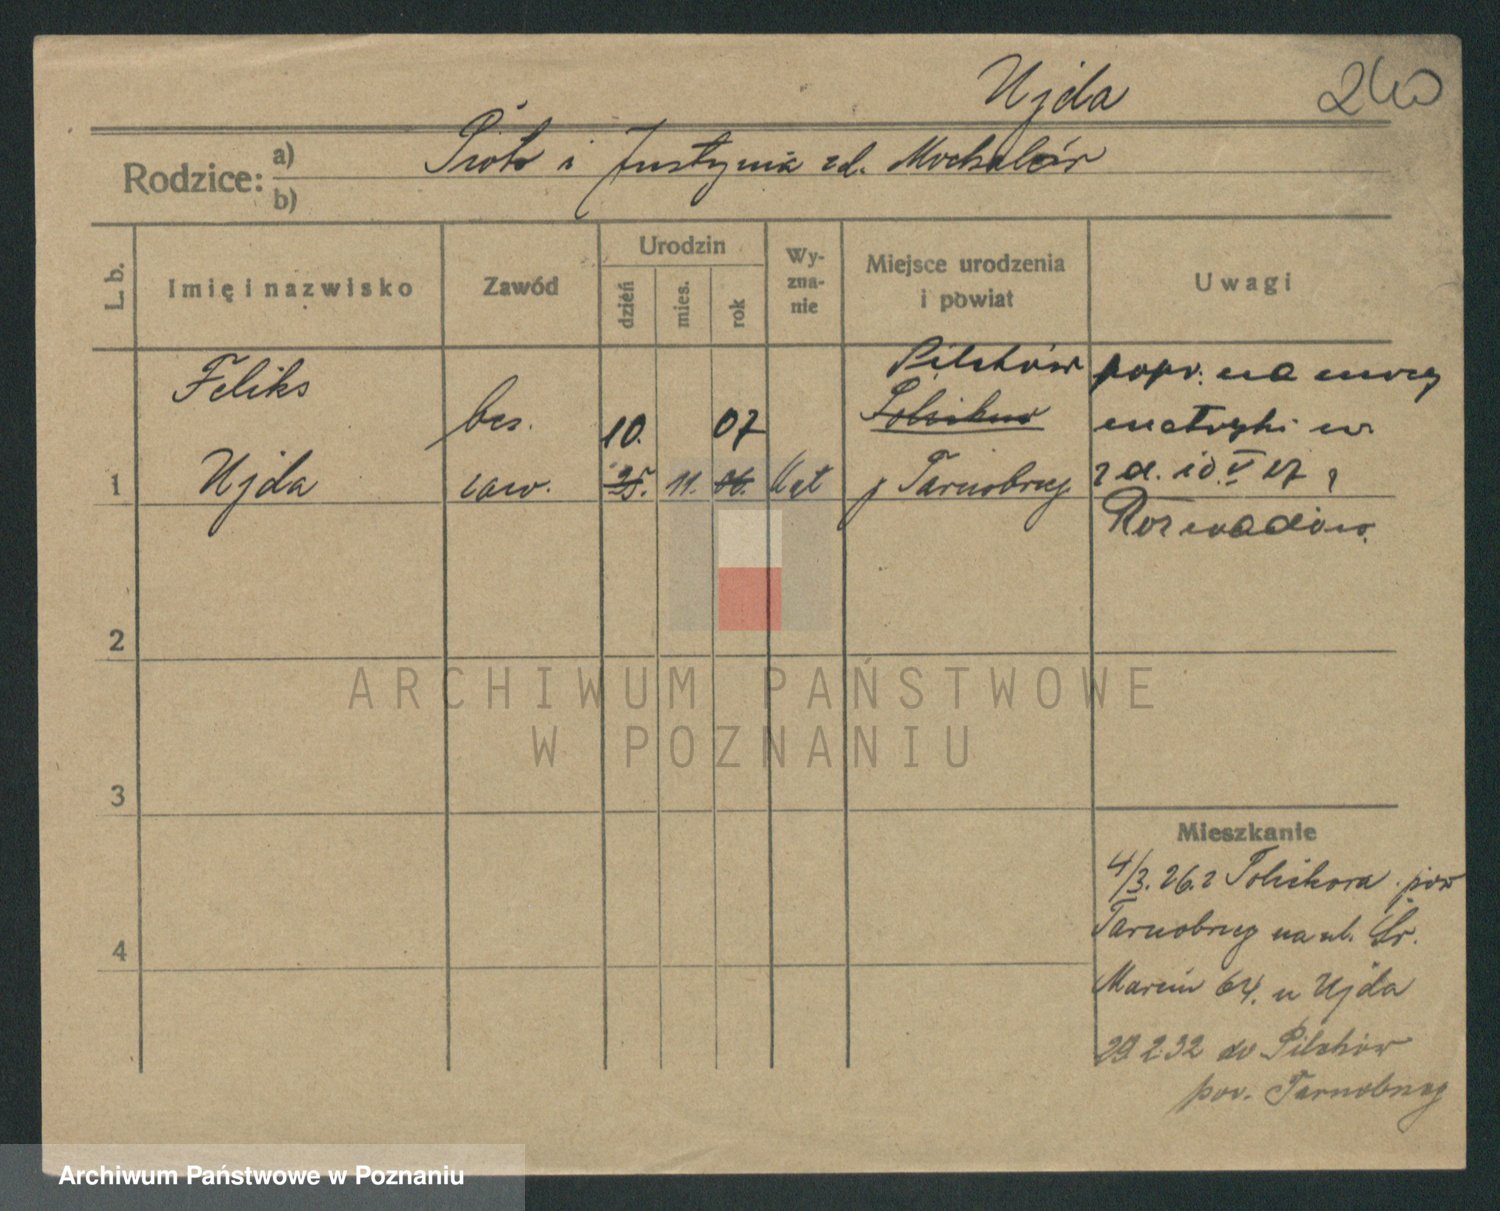 Ujda
240
Rodzice: a) Piotr i Justynia zd. Mochalów
b)
L. b.
Imię i nazwisko
Zawód
Urodzin
dzień
mies.
rok
Wy-
zna-
nie
Miejsce urodzenia
i powiat
Uwagi
Feliks
Ujda
bez.
zaw.
10.
25.
11.
07
06.
kat
Pilchów
p Tarnobrzeg
popr. na mocy
metryki w
z d. 10 V 27 z
Rozwadów.
1
2
3
4
ARCHIWUM PAŃSTWOWE
W POZNANIU
Mieszkanie
4/3. 26. z pow
Tarnobrzeg na ul. Św.
Marcin 64. u Ujda
29 2 32 do Pilchów
pow. Tarnobrzeg
Archiwum Państwowe w Poznaniu